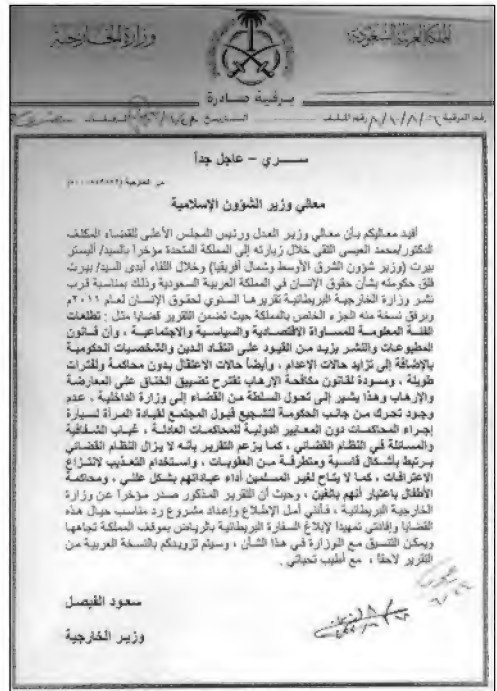 المملكة العربية السعودية
وزارة الخارجية
برقية صادرة
رقم الملف
التاريخ
سـري - عاجل جداً
معالي وزير الشؤون الإسلامية
أفيد معاليكم بأن معالي وزير العدل ورئيس المجلس الأعلى للقضاء المكلف
الدكتور/محمد العيسى التقى خلال زيارته إلى المملكة المتحدة مؤخراً بالسيد/ أليستر
بيرت (وزير شؤون الشرق الأوسط وشمال أفريقيا) وخلال اللقاء أبدى السيد/ بيرت
قلق حكومته بشأن حقوق الإنسان في المملكة العربية السعودية وذلك بمناسبة قرب
نشر وزارة الخارجية البريطانية تقريرها السنوي لحقوق الإنسان لعام ٢٠١١م
ويرفق نسخة منه الجزء الخاص بالمملكة حيث تضمن التقرير قضايا مثل : تطلعات
الفئة المعلومة للمساواة الاقتصادية والسياسية والاجتماعية ، وأن قانون
المطبوعات والنشر يزيد من القيود على انتقاد الدين والشخصيات الحكومية
بالإضافة إلى تزايد حالات الإعدام ، وأيضاً حالات الاعتقال بدون محاكمة ولفترات
طويلة ، ومسودة لقانون مكافحة الإرهاب تقترح تضييق الخناق على المعارضة
والإرهاب وهذا يشير إلى تحول السلطة من القضاء إلى وزارة الداخلية ، عدم
وجود تحرك من جانب الحكومة لتشجيع قبول المجتمع لقيادة المرأة لسيارة
إجراء المحاكمات دون المعايير الدولية للمحاكمات العادلة ، غياب الشفافية
والمسائلة في النظام القضائي ، كما يزعم التقرير بأنه لا يزال النظام القضائي
يرتبط بأشكال قاسية ومتطرفة من العقوبات ، واستخدام التعذيب لانتزاع
الاعترافات ، كما لا يتاح لغير المسلمين أداء عباداتهم بشكل علني ، ومحاكمة
الأطفال باعتبار أنهم بالغين ، وحيث أن التقرير المذكور صدر مؤخراً عن وزارة
الخارجية البريطانية ، فأنني أمل الإطلاع وإعداد مشروع رد مناسب حيال هذه
القضايا وإفادتي تمهيدا لإبلاغ السفارة البريطانية بالرياض بموقف المملكة تجاهها
ويمكن التنسيق مع الوزارة في هذا الشأن ، وسيتم تزويدكم بالنسخة العربية من
التقرير لاحقاً ، مع أطيب تحياتي .
سعود الفيصل
وزير الخارجية